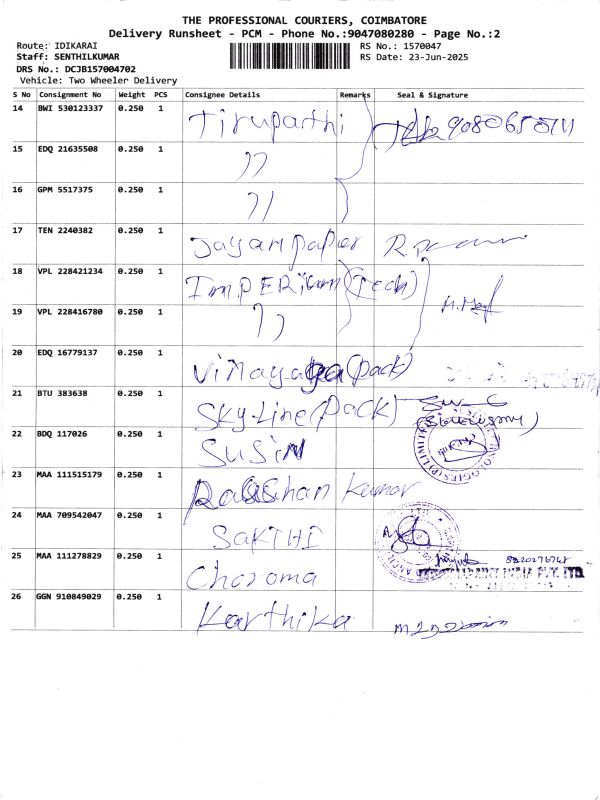 THE PROFESSIONAL COURIERS, COIMBATORE
Delivery Runsheet - PCM - Phone No.:9047080280 - Page No.:2
Route: IDIKARAI RS No.: 1570047
Staff: SENTHILKUMAR RS Date: 23-Jun-2025
DRS No.: DCJB157004702
Vehicle: Two Wheeler Delivery
S No Consignment No Weight PCS Consignee Details Remarks Seal & Signature
14 BWI 530123337 0.250 1 Tirupathi
15 EDQ 21635508 0.250 1 ))
16 GPM 5517375 0.250 1 ))
17 TEN 2240382 0.250 1 Jayam papier
18 VPL 228421234 0.250 1 ImPERium (Tech)
19 VPL 228416780 0.250 1 ))
20 EDQ 16779137 0.250 1 Vinayaga (Pack)
21 BTU 383638 0.250 1 Sky-Line (Pack)
22 BDQ 117026 0.250 1 SUSiN
23 MAA 111515179 0.250 1 Kumar
24 MAA 709542047 0.250 1 SAKTHI
25 MAA 111278829 0.250 1 Charoma
26 GGN 910849029 0.250 1 Karthika